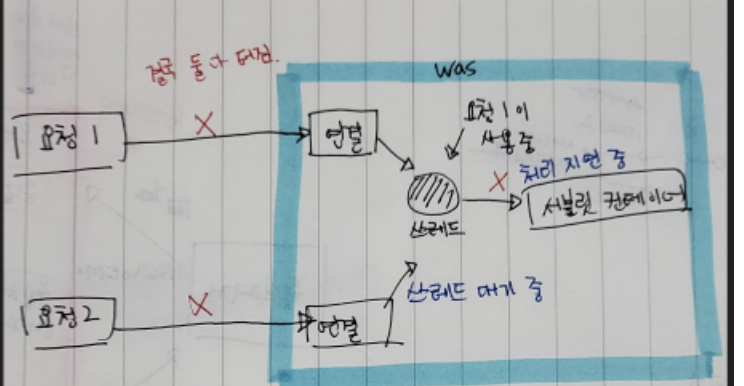 결국 둘 다 터짐.
was
요청 1
연결
요청 1 이
사용 중
처리 지연 중
서블릿 컨테이너
쓰레드
쓰레드 대기 중
요청 2
연결